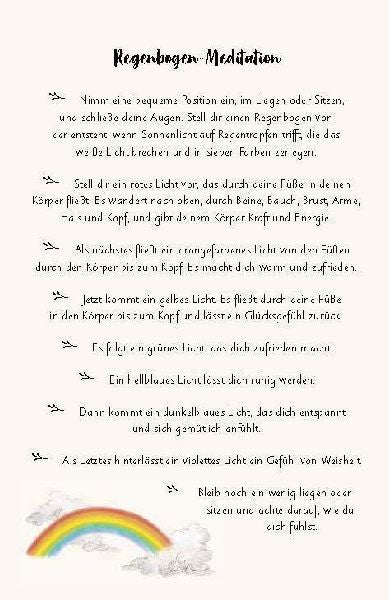 Regenbogen-Meditation
Nimm eine bequeme Position ein, im Liegen oder Sitzen,
und schließe deine Augen. Stell dir einen Regenbogen vor
der entsteht, wenn Sonnenlicht auf Regentropfen trifft, die das
weiße Licht brechen und in sieben Farben zerlegen.
Stell dir ein rotes Licht vor, das durch deine Füße in deinen
Körper fließt. Es wandert nach oben, durch Beine, Bauch, Brust, Arme,
Hals und Kopf, und gibt deinem Körper Kraft und Energie.
Als nächstes fließt ein orangefarbenes Licht von den Füßen
durch den Körper bis zum Kopf. Es macht dich warm und zufrieden.
Jetzt kommt ein gelbes Licht. Es fließt durch deine Füße
in den Körper bis zum Kopf und lässt ein Glücksgefühl zurück.
Es folgt ein grünes Licht, das dich zufrieden macht.
Ein hellblaues Licht lässt dich ruhig werden.
Dann kommt ein dunkelblaues Licht, das dich entspannt
und sich gemütlich anfühlt.
Als Letztes hinterlässt ein violettes Licht ein Gefühl von Weisheit.
Bleib noch ein wenig liegen oder
sitzen und achte darauf, wie du
dich fühlst.